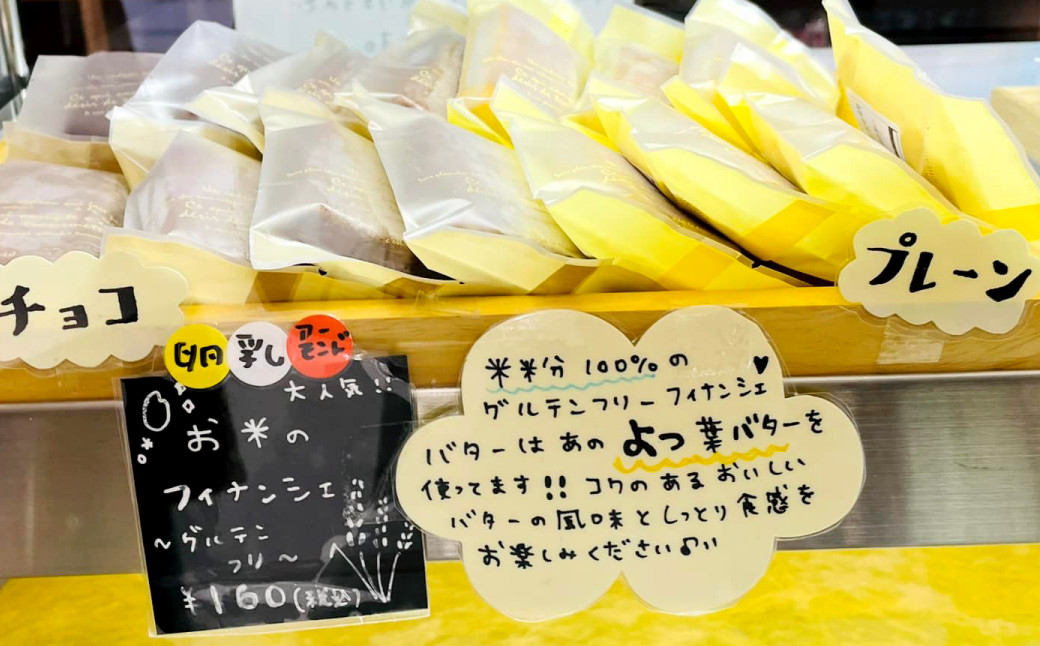 チョコ
プレーン
卵
乳
アー
モンド
大人気!!
お米の
フィナンシェ
~グルテン
フリ~
¥160(税込)
米粉分100%の
グルテンフリーフィナンシェ♥
バターはあのよつ葉バターを
使ってます!!コクのあるおいしい
バターの風味としっとり食感を
お楽しみください♪